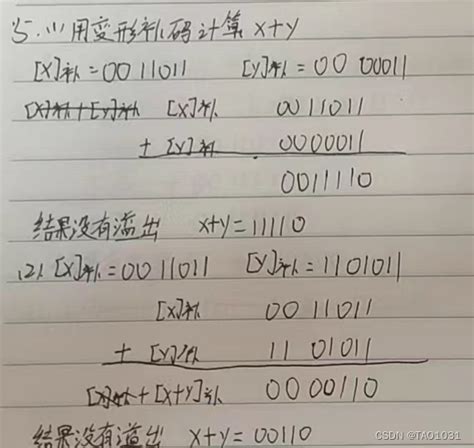 5.(1)用变形补码计算 x+y
[x]补=00 11011 [y]补=00 00011
[x]补+[y]补 [x]补 0011011
+ [y]补 0000011
0011110
结果没有溢出 x+y=11110
(2) [x]补=00 11011 [y]补=1101011
[x]补 00 11011
+ [y]补 11 01011
[x]补+[x+y]补 0000110
结果没有溢出 x+y=00110
CSDN @TAO1031